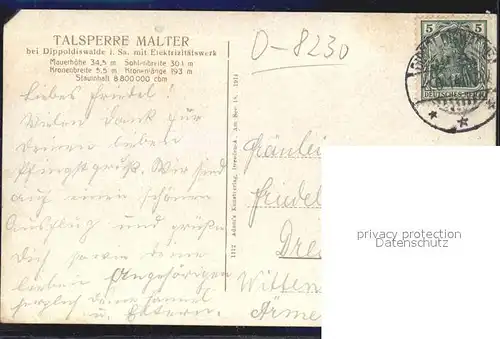 TALSPERRE MALTER
bei Dippoldiswalde i. Sa. mit Elektrizitätswerk
Mauerhöhe 34,5 m Sohlenbreite 30,1 m
Kronenbreite 5,5 m Kronenlänge 193 m
Stauinhalt 8 800 000 cbm
D-8230
5 5
DEUTSCHES REICH
Liebes Friedel!
Vielen Dank für
Deinen lieben
Pfingstgruß. Wir sind
auf einem schönen
Ausflug und grüßen
Dich sowie deine
lieben Angehörigen
herzlich deine
u. Eltern.
1912 Adam's Kunstverlag, Dresden
Fräulein
Friedel
Dres
Witten
privacy protection
Datenschutz